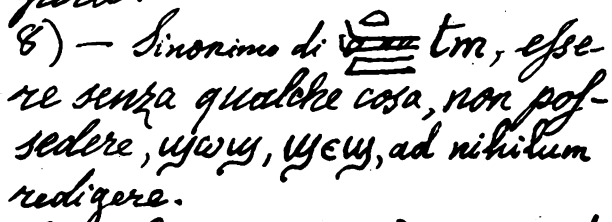 8) — Sinonimo di tm, eſse-
re senza qualche cosa, non poſ-
sedere, ϣⲱϣ, ϣⲉϣ, ad nihilum
redigere.